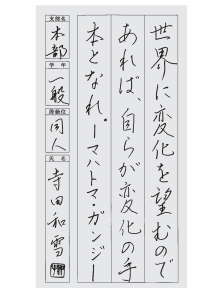 世界に変化を望むので
あれば、自らが変化の手
本となれ。ーマハトマ・ガンジー
支部名
本部
学年
一般
段級位
同人
氏名
寺田和雪